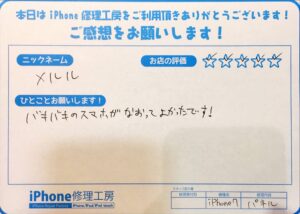 本日は iPhone 修理工房をご利用頂きありがとうございます！
ご感想をお願いします！
ニックネーム
メルル
お店の評価
☆☆☆☆☆
ひとことお願いします！
バキバキのスマホがなおってよかったです！
iPhone修理工房
iPhone/iPad/iPod touch
iPhone7
バキル